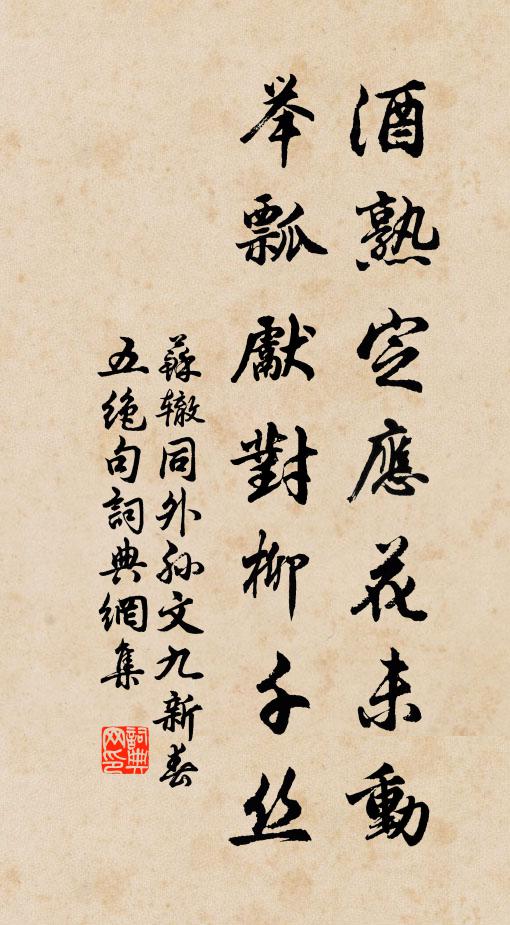 酒熟定應花未動
举瓢獻對柳千丝
蘇辙同外孙文九新春
五絶句詞典網集
詞典
网印